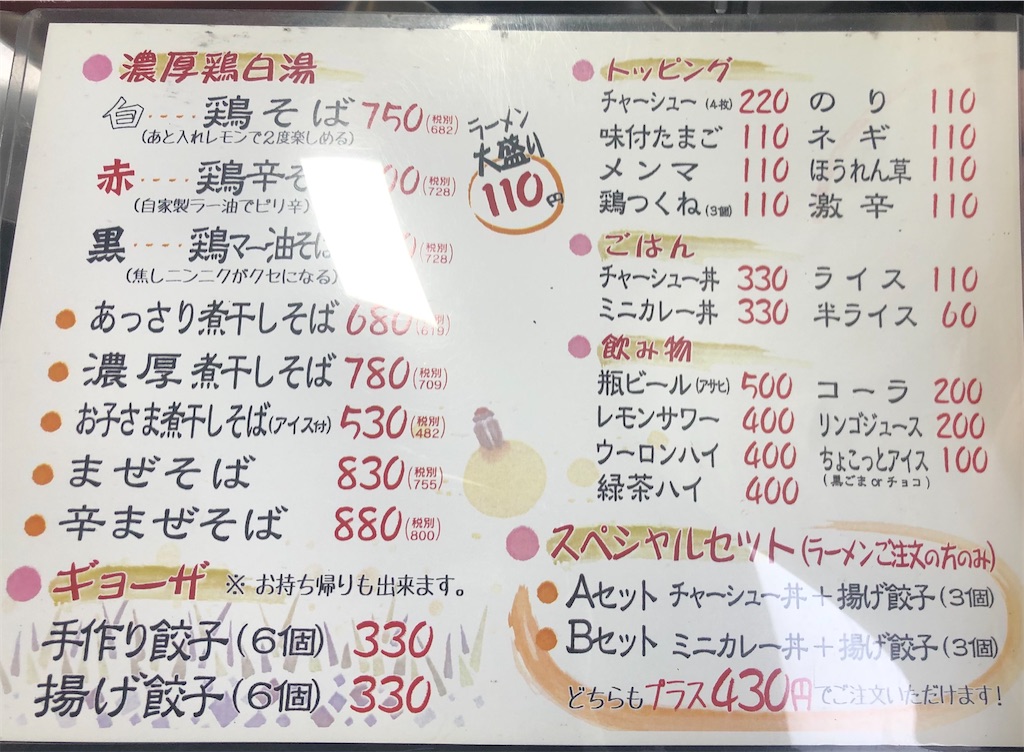 濃厚鶏白湯
白‥‥鶏そば 750(税別682)
(あと入れレモンで2度楽しめる)
赤‥‥鶏辛そ 00(税別728)
(自家製ラー油でピリ辛)
黒‥‥鶏マー油そば (税別728)
(焦しニンニクがクセになる)
ラーメン
大盛り
110円
あっさり煮干しそば 680(税別619)
濃厚煮干しそば 780(税別709)
お子さま煮干しそば(アイス付) 530(税別482)
まぜそば 830(税別755)
辛まぜそば 880(税別800)
ギョーザ ※お持ち帰りも出来ます。
手作り餃子(6個) 330
揚げ餃子(6個) 330
トッピング
チャーシュー(4枚) 220 のり 110
味付たまご 110 ネギ 110
メンマ 110 ほうれん草 110
鶏つくね(3個) 110 激辛 110
ごはん
チャーシュー丼 330 ライス 110
ミニカレー丼 330 半ライス 60
飲み物
瓶ビール(アサヒ) 500 コーラ 200
レモンサワー 400 リンゴジュース 200
ウーロンハイ 400 ちょこっとアイス 100
(黒ごまorチョコ)
緑茶ハイ 400
スペシャルセット(ラーメンご注文の方のみ)
Aセット チャーシュー丼+揚げ餃子(3個)
Bセット ミニカレー丼+揚げ餃子(3個)
どちらもプラス430円でご注文いただけます!